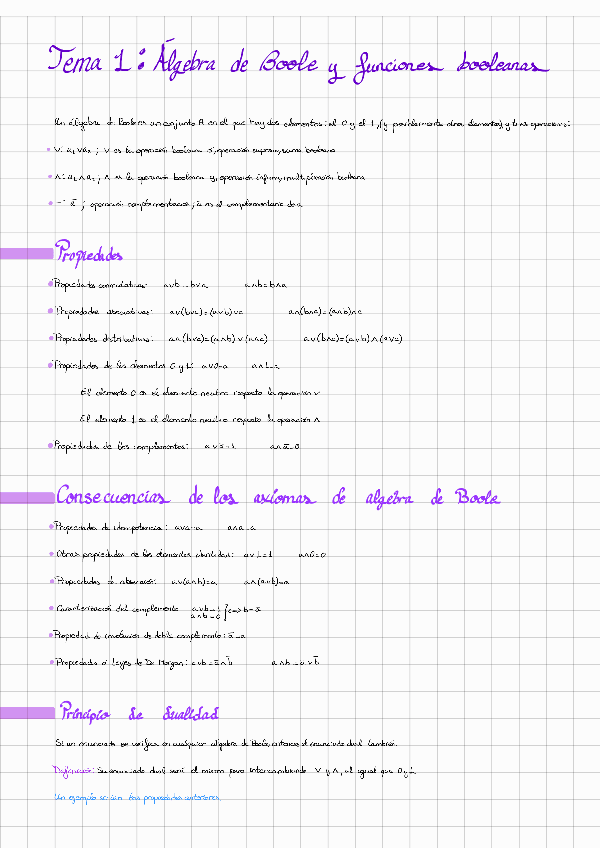 Tema 1: Álgebra de Boole y funciones booleanas
Un álgebra de Boole es un conjunto A en el que hay dos elementos: el 0 y el 1, (y posiblemente otros elementos) y tres operaciones:
∨: a₁∨a₂ ; ∨ es la operación booleana o, operación supremo, suma booleana
∧: a₁∧a₂ ; ∧ es la operación booleana y, operación ínfimo, multiplicación booleana
¯: ā ; operación complementación; ā es el complementario de a
Propiedades
Propiedades conmutativas: a∨b=b∨a a∧b=b∧a
Propiedades asociativas: a∨(b∨c)=(a∨b)∨c a∧(b∧c)=(a∧b)∧c
Propiedades distributivas: a∧(b∨c)=(a∧b)∨(a∧c) a∨(b∧c)=(a∨b)∧(a∨c)
Propiedades de los elementos 0 y 1: a∨0=a a∧1=a
El elemento 0 es el elemento neutro respecto la operación ∨
El elemento 1 es el elemento neutro respecto la operación ∧
Propiedades de los complementos: a∨ā=1 a∧ā=0
Consecuencias de los axiomas de algebra de Boole
Propiedades de idempotencia: a∨a=a a∧a=a
Otras propiedades de los elementos identidad: a∨1=1 a∧0=0
Propiedades de absorción: a∨(a∧b)=a a∧(a∨b)=a
Caracterización del complemento a∨b=1
a∧b=0 } <=> b=ā
Propiedad de involución de doble complemento: a̿=a
Propiedades o Leyes de De Morgan: a∨b=ā∧b̄ a∧b=ā∨b̄
Principio de dualidad
Si un enunciado se verifica en cualquier álgebra de Boole, entonces el enunciado dual también.
Definición: Su enunciado dual será el mismo pero intercambiando ∨ y ∧, al igual que 0 y 1.
Un ejemplo serían las propiedades anteriores.